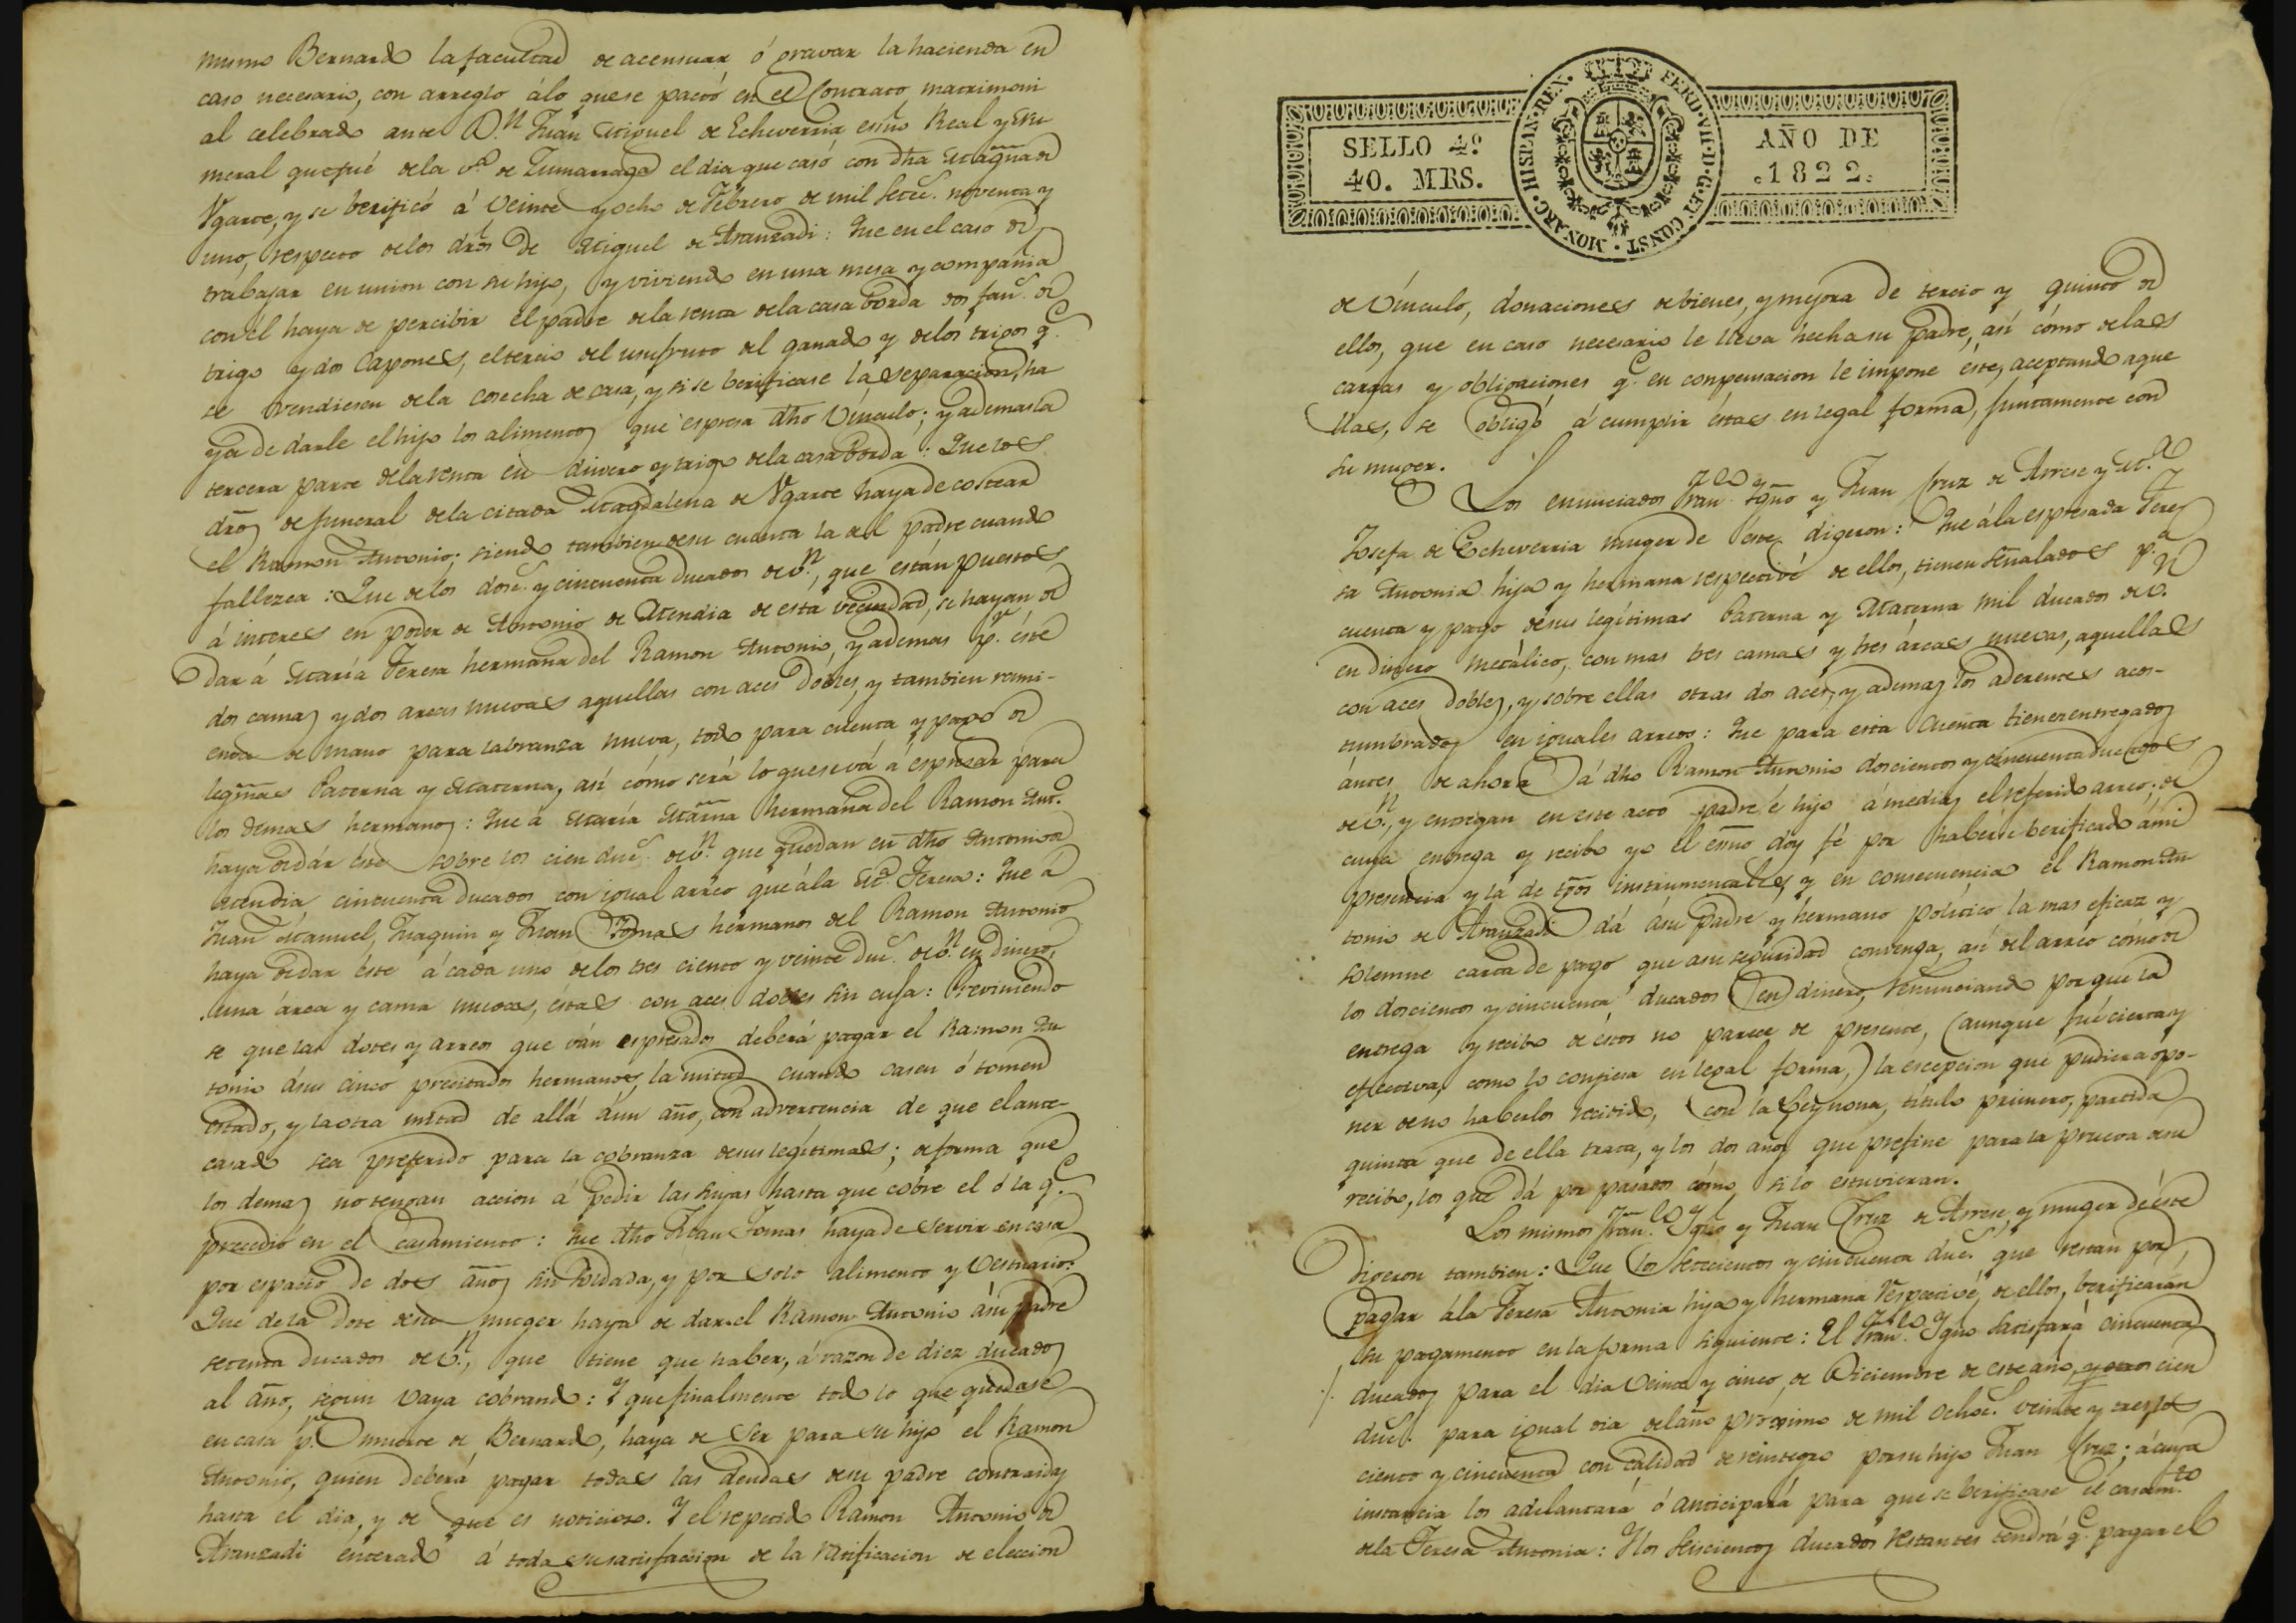 mismo Bernardo la facultad de acensuar ó gravar la hacienda en
caso necesario, con arreglo á lo que se pactó en el Contrato matrimoni
al celebrado ante D.n Juan Miguel de Echeverria esño Real y Nu
meral que fué de la v.a de Zumarraga el dia que casó con dha Magna de
Ugarte, y se berificó á veinte y ocho de Febrero de mil setec.s noventa y
uno, respecto de los dros de Miguel de Aranzadi: Que en el caso de
trabajar en union con su hijo, y viviendo en una mesa y compañia
con el haya de percibir el padre de la renta de la casa borda dos fan.s de
trigo y dos Capones, el tercio del usufruto del ganado y de los trigos q.e
se vendiesen de la cosecha de casa, y si se berificase la separacion, ha
ya de darle el hijo los alimentos que espresa dho Vínculo; y ademas la
tercera parte de la renta en dinero y trigo de la casa borda: Que los
dros de funeral de la citada Magdalena de Ugarte haya de costear
el Ramon Antonio; siendo tambien de su cuenta la del padre cuando
fallezca: Que de los dosc.s y cincuenta ducados de v.n, que están puestos
á interes en poder de Antonio de Mendia de esta vecindad, se hayan de
dar á María Teresa hermana del Ramon Antonio, y ademas p.r éste
dos camas y dos arcas nuevas aquellas con aces dobles, y tambien rami-
enta de mano para labranza nueva, todo para cuenta y pago de
legmas Paterna y Materna, así cómo será lo que se vá á espresar para
los demas hermanos: Que a María Mañna hermana del Ramon Ant.o
haya de dár éste sobre los cien duc.s de v.n que quedan en dho Antonio de
Mendia cincuenta ducados con igual arreo que á la M.a Teresa: Que á
Juan Manuel, Juaquin y Juan Tomas hermanos del Ramon Antonio
haya de dar éste á cada uno de los tres ciento y veinte duc.s de v.n en dinero,
una árca y cama nuevas, éstas con aces dobles sin cuja: Previniendo
se que las dotes y arreos que ván espresados deberá pagar el Ramon An
tonio á sus cinco precitados hermanos, la mitad cuando casen ó tomen
estado, y la otra mitad de allá á un año, con advertencia de que el ante-
casado sea preferido para la cobranza de sus legítimas; de forma que
los demas no tengan accion á pedir las suyas hasta que cobre el ó la q.e
precedió en el casamiento: Que dho Juan Tomas haya de servir en casa
por espacio de dos años sin soldada, y por solo alimento y vestuario:
Que de la dote de su muger haya de dar el Ramon Antonio á su padre
setenta ducados de v.n, que tiene que haber, á razon de diez ducados
al año, segun vaya cobrando: Y que finalmente todo lo que quedase
en casa p.r muerte de Bernardo, haya de ser para su hijo el Ramon
Antonio, quien deberá pagar todas las deudas de su padre contraidas
hasta el dia, y de que es noticioso. Y el repetido Ramon Antonio de
Aranzadi enterado á toda su satisfaccion de la ratificacion de eleccion
SELLO 4º
40. MRS.
HISPAN. REX. FERD. VII. D. G. ET CONST. MONARC.
AÑO DE
1822.
de Vínculo, donaciones de bienes, y mejora de tercio y quinto de
ellos, que en caso necesario le lleva hecha su padre, así cómo de las
cargas y obligaciones q.e en conpensacion le impone éste, aceptando aque
llas, se obligó á cumplir éstas en legal forma, juntamente con
su muger.
Los enunciados Fran.co Ygño y Juan Cruz de Arrese y M.a
Josefa de Echeverria muger de éste digeron: Que á la espresada Tere
sa Antonia hija y hermana respectivé de ellos, tienen señalados p.a
cuenta y pago de sus legítimas Paterna y Materna mil ducados de v.n
en dinero metálico, con mas tres camas y tres árcas nuevas, aquellas
con aces dobles, y sobre ellas otras dos acés, y ademas los aderentes acos-
tumbrados en iguales arreos: Que para esta cuenta tienen entregados
ántes de ahora á dho Ramon Antonio doscientos y cincuenta ducados
de v.n, y entregan en este acto padre é hijo á medias el referido arreo; de
cuya entrega y recibo yo el esño doy fé por haberse berificado á mi
presencia y la de tgos instrumentales, y en consecuencia el Ramon An
tonio de Aranzadi dá á su padre y hermano político la mas eficaz y
solemne carta de pago que a su seguridad convenga, así del arreo cómo de
los doscientos y cincuenta ducados en dinero, renunciando por que la
entrega y recibo de éstos no parece de presente, (aunque fué cierta y
efectiva, como lo confiesa en legal forma,) la escepcion que pudiera opo-
ner de no haberlos recibido, con la ley nona, título primero, partida
quinta que de ella trata, y los dos años que prefine para la prueva de su
recibo, los que dá por pasados cómo si lo estuvieran.
Los mismos Fran.co Ygño y Juan Cruz de Arrese, y muger de éste
digeron tambien: Que los setecientos y cincuenta duc.s que restan por
pagar á la Teresa Antonia hija y hermana respectivé, de ellos, berificarán
su pagamento en la forma siguiente: El Fran.co Ygño satisfará cincuenta
ducados para el dia veinte y cinco de Diciembre de este año, y otros cien
duc.s para igual dia del año próximo de mil ochoc.s veinte y tres, los
ciento y cincuenta con calidad de reintegro por su hijo Juan Cruz; á cuya
instancia los adelantará ó anticipará para que se berificase el casam.to
de la Teresa Antonia: Y los seiscientos ducados restantes tendrá q.e pagar el